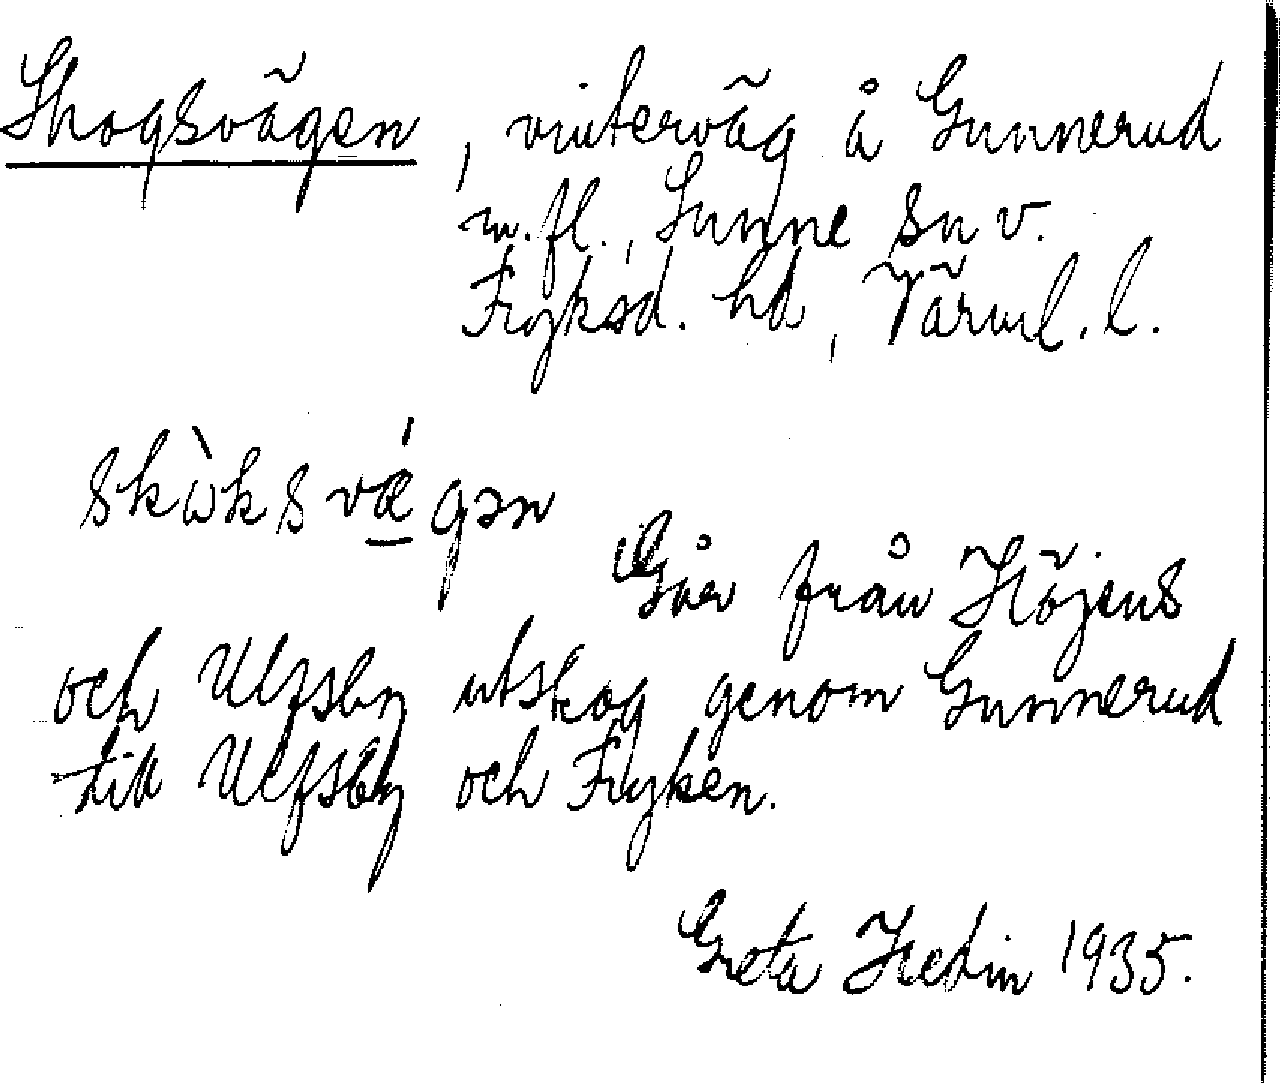 Skogsvägen, vinterväg å Gunnerud
m.fl., Sunne sn v.
Fryksd. hd, Värml. l.
skὼksvǽ̠gən
Går från Höjens
och Ulfsby utskog genom Gunnerud
till Ulfsby och Fryken.
Greta Hedin 1935.